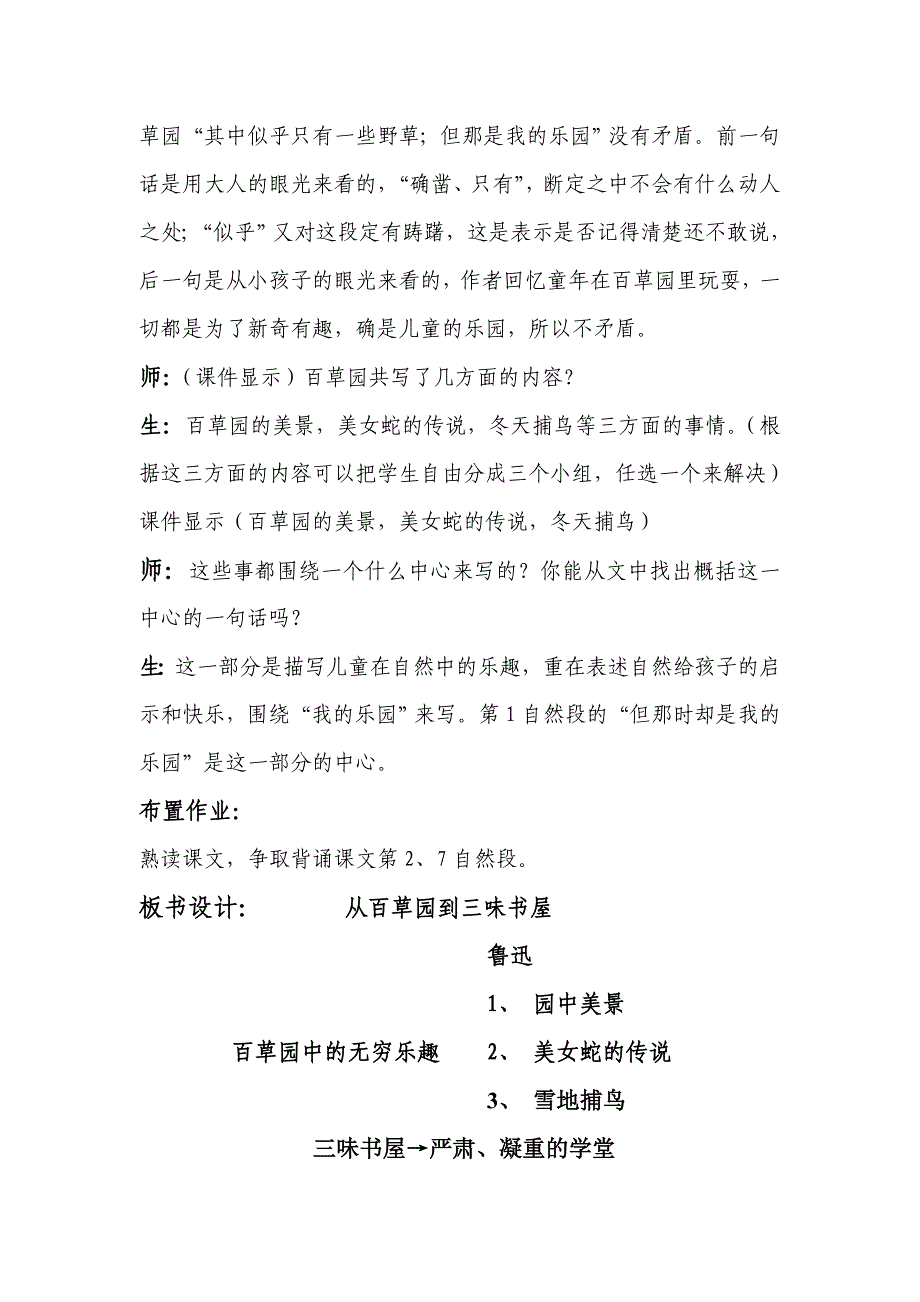 草园“其中似乎只有一些野草；但那是我的乐园”没有矛盾。前一句
话是用大人的眼光来看的，“确凿、只有”，断定之中不会有什么动人
之处；“似乎”又对这段定有踌躇，这是表示是否记得清楚还不敢说，
后一句是从小孩子的眼光来看的，作者回忆童年在百草园里玩耍，一
切都是为了新奇有趣，确是儿童的乐园，所以不矛盾。
师：（课件显示）百草园共写了几方面的内容？
生：百草园的美景，美女蛇的传说，冬天捕鸟等三方面的事情。（根
据这三方面的内容可以把学生自由分成三个小组，任选一个来解决）
课件显示（百草园的美景，美女蛇的传说，冬天捕鸟）
师：这些事都围绕一个什么中心来写的？你能从文中找出概括这一
中心的一句话吗？
生：这一部分是描写儿童在自然中的乐趣，重在表述自然给孩子的启
示和快乐，围绕“我的乐园”来写。第1自然段的“但那时却是我的
乐园”是这一部分的中心。
布置作业：
熟读课文，争取背诵课文第2、7自然段。
板书设计： 从百草园到三味书屋
鲁迅
1、 园中美景
百草园中的无穷乐趣 2、 美女蛇的传说
3、 雪地捕鸟
三味书屋→严肃、凝重的学堂